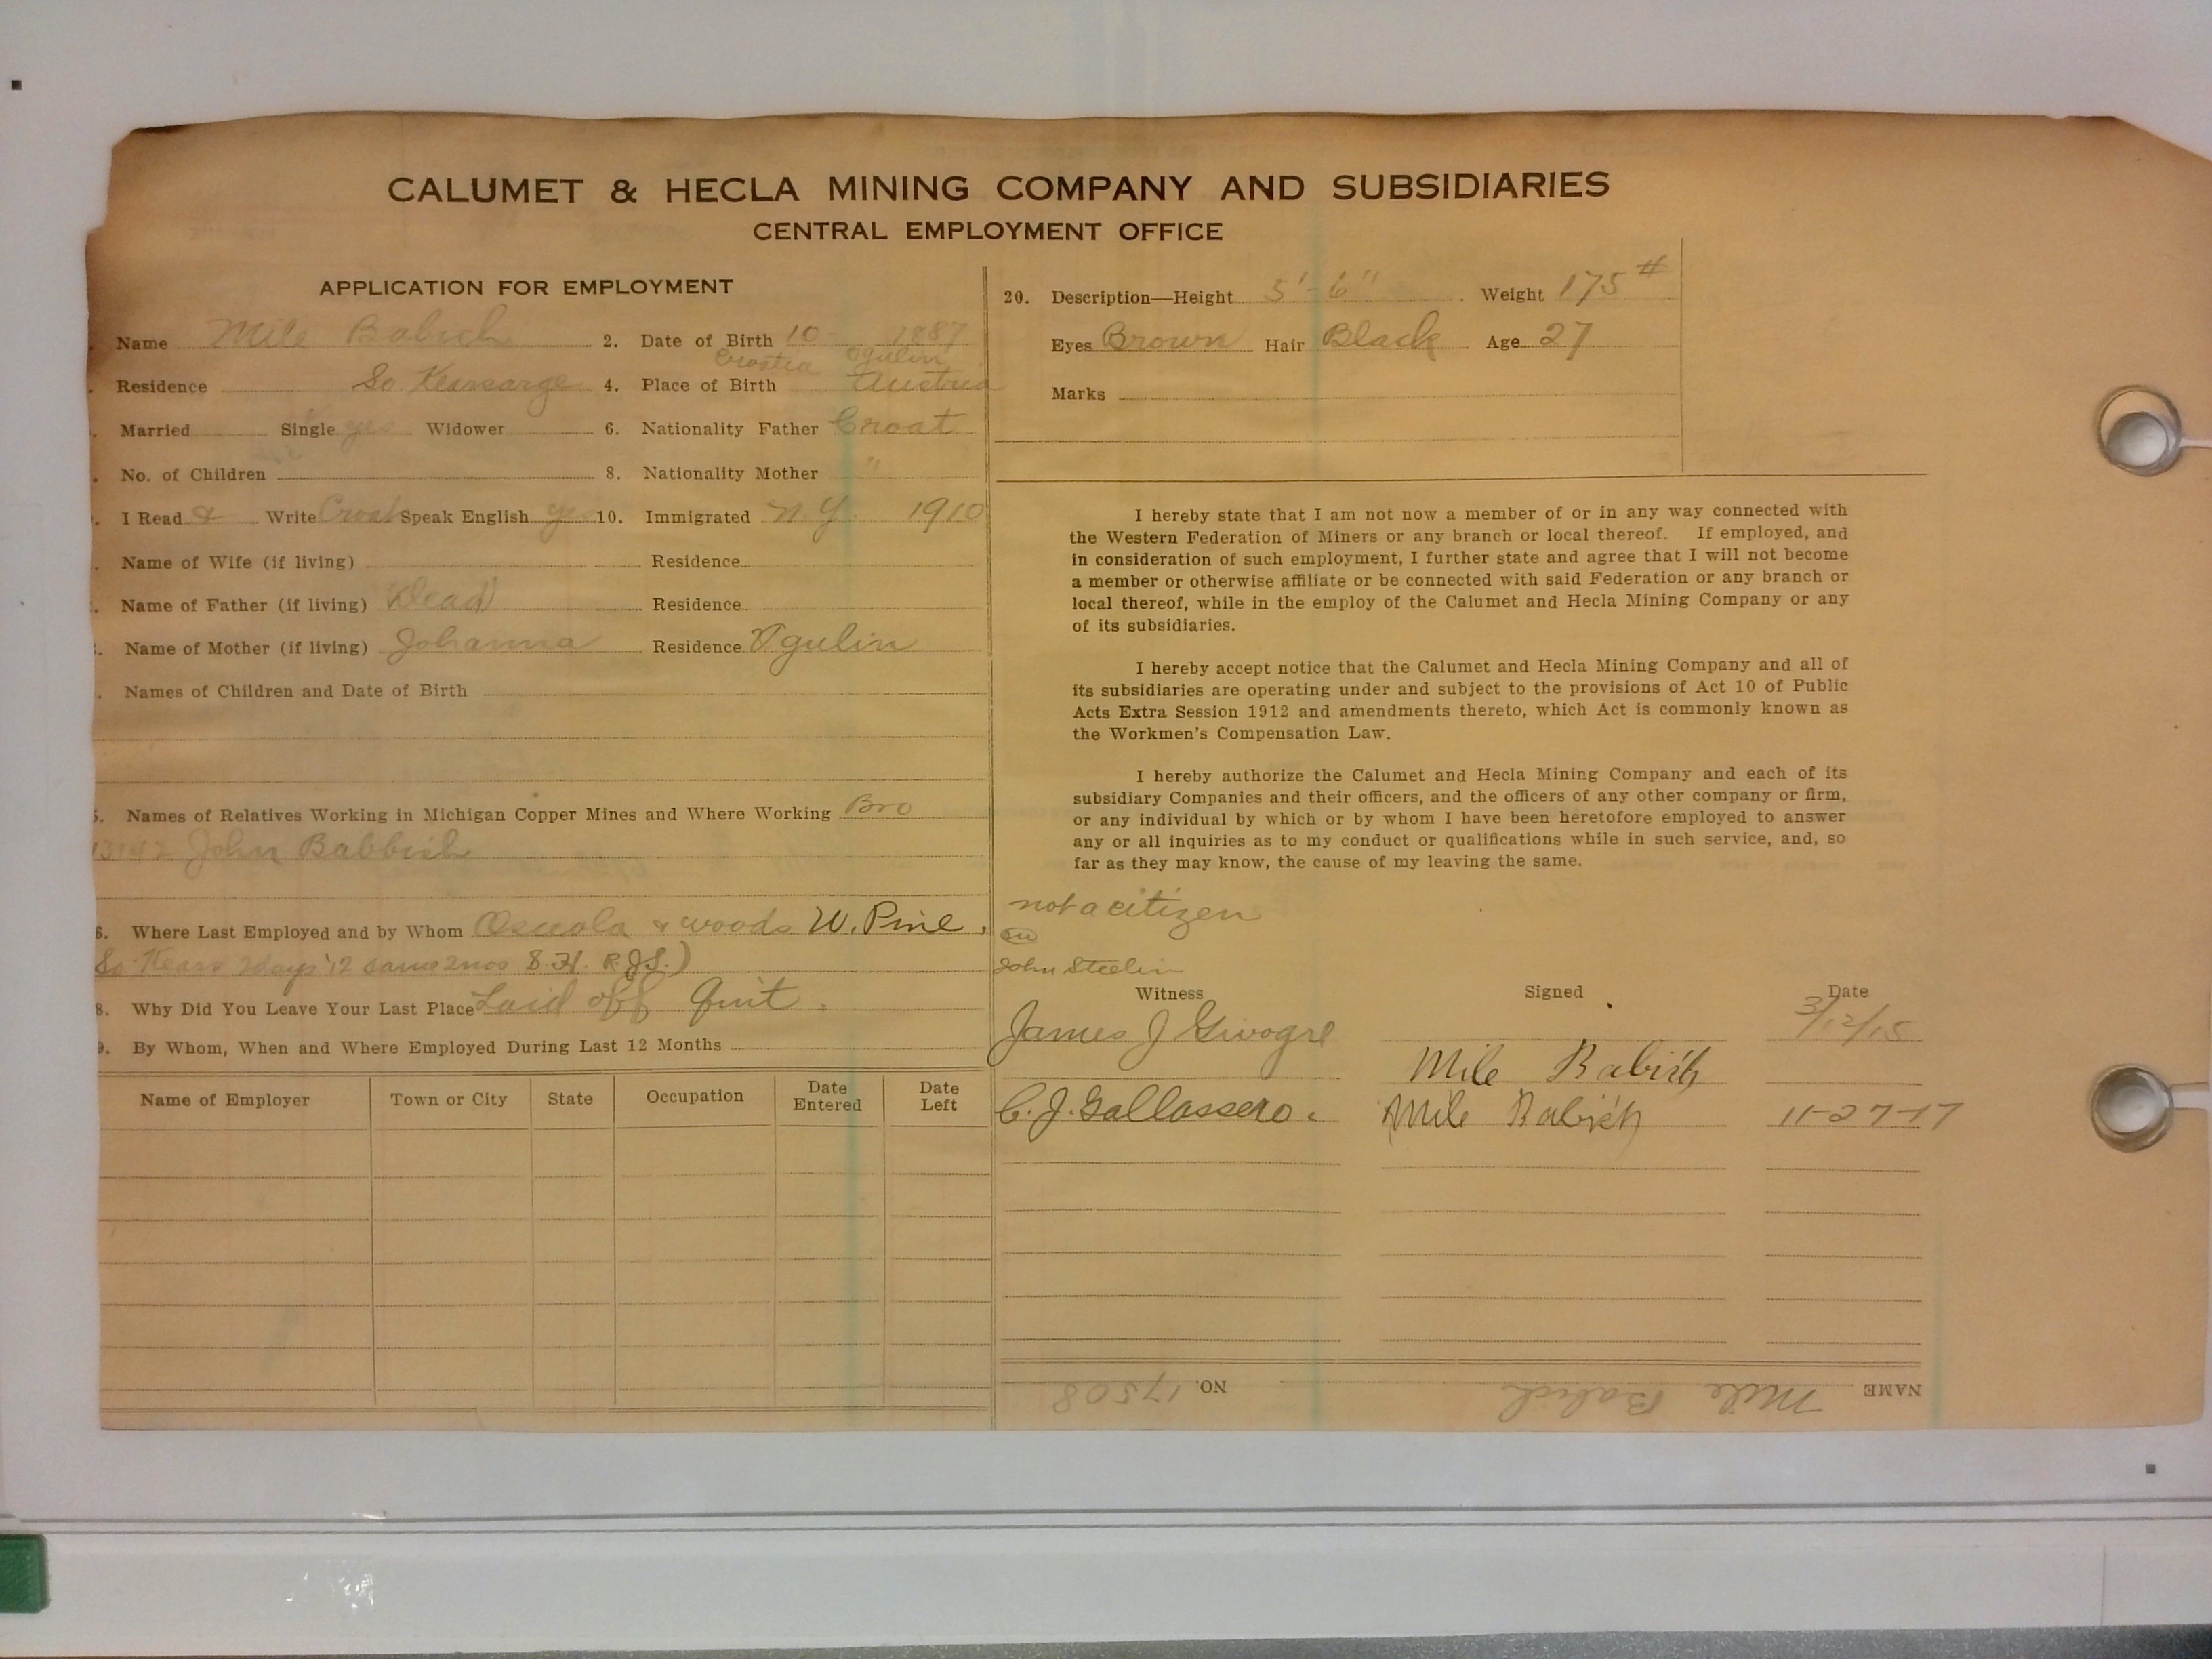 CALUMET & HECLA MINING COMPANY AND SUBSIDIARIES
CENTRAL EMPLOYMENT OFFICE
APPLICATION FOR EMPLOYMENT
Name Mile Babich 2. Date of Birth 10 - 1887
Croatia Ogulin
Residence So. Kearsarge 4. Place of Birth Austria
Married Single yes Widower 6. Nationality Father Croat
No. of Children 8. Nationality Mother "
I Read & Write Croat Speak English yes 10. Immigrated N.Y. 1910
Name of Wife (if living) Residence
Name of Father (if living) Dead Residence
Name of Mother (if living) Johanna Residence Ogulin
Names of Children and Date of Birth
5. Names of Relatives Working in Michigan Copper Mines and Where Working Bro
13142 John Babbich
6. Where Last Employed and by Whom Osceola & woods W. Pine.
So. Kears 2days '12 same 2mos S.H. R.J.S.)
8. Why Did You Leave Your Last Place Laid off Quit.
9. By Whom, When and Where Employed During Last 12 Months
Name of Employer Town or City State Occupation Date Entered Date Left
20. Description—Height 5'-6" Weight 175#
Eyes Brown Hair Black Age 27
Marks
I hereby state that I am not now a member of or in any way connected with
the Western Federation of Miners or any branch or local thereof. If employed, and
in consideration of such employment, I further state and agree that I will not become
a member or otherwise affiliate or be connected with said Federation or any branch or
local thereof, while in the employ of the Calumet and Hecla Mining Company or any
of its subsidiaries.
I hereby accept notice that the Calumet and Hecla Mining Company and all of
its subsidiaries are operating under and subject to the provisions of Act 10 of Public
Acts Extra Session 1912 and amendments thereto, which Act is commonly known as
the Workmen's Compensation Law.
I hereby authorize the Calumet and Hecla Mining Company and each of its
subsidiary Companies and their officers, and the officers of any other company or firm,
or any individual by which or by whom I have been heretofore employed to answer
any or all inquiries as to my conduct or qualifications while in such service, and, so
far as they may know, the cause of my leaving the same.
not a citizen
John
Witness Signed Date
James J 3/12/15
Mile Babich
C. J. Gallassero. Mile Babich 11-27-17
NAME Mile Babich NO. 17508